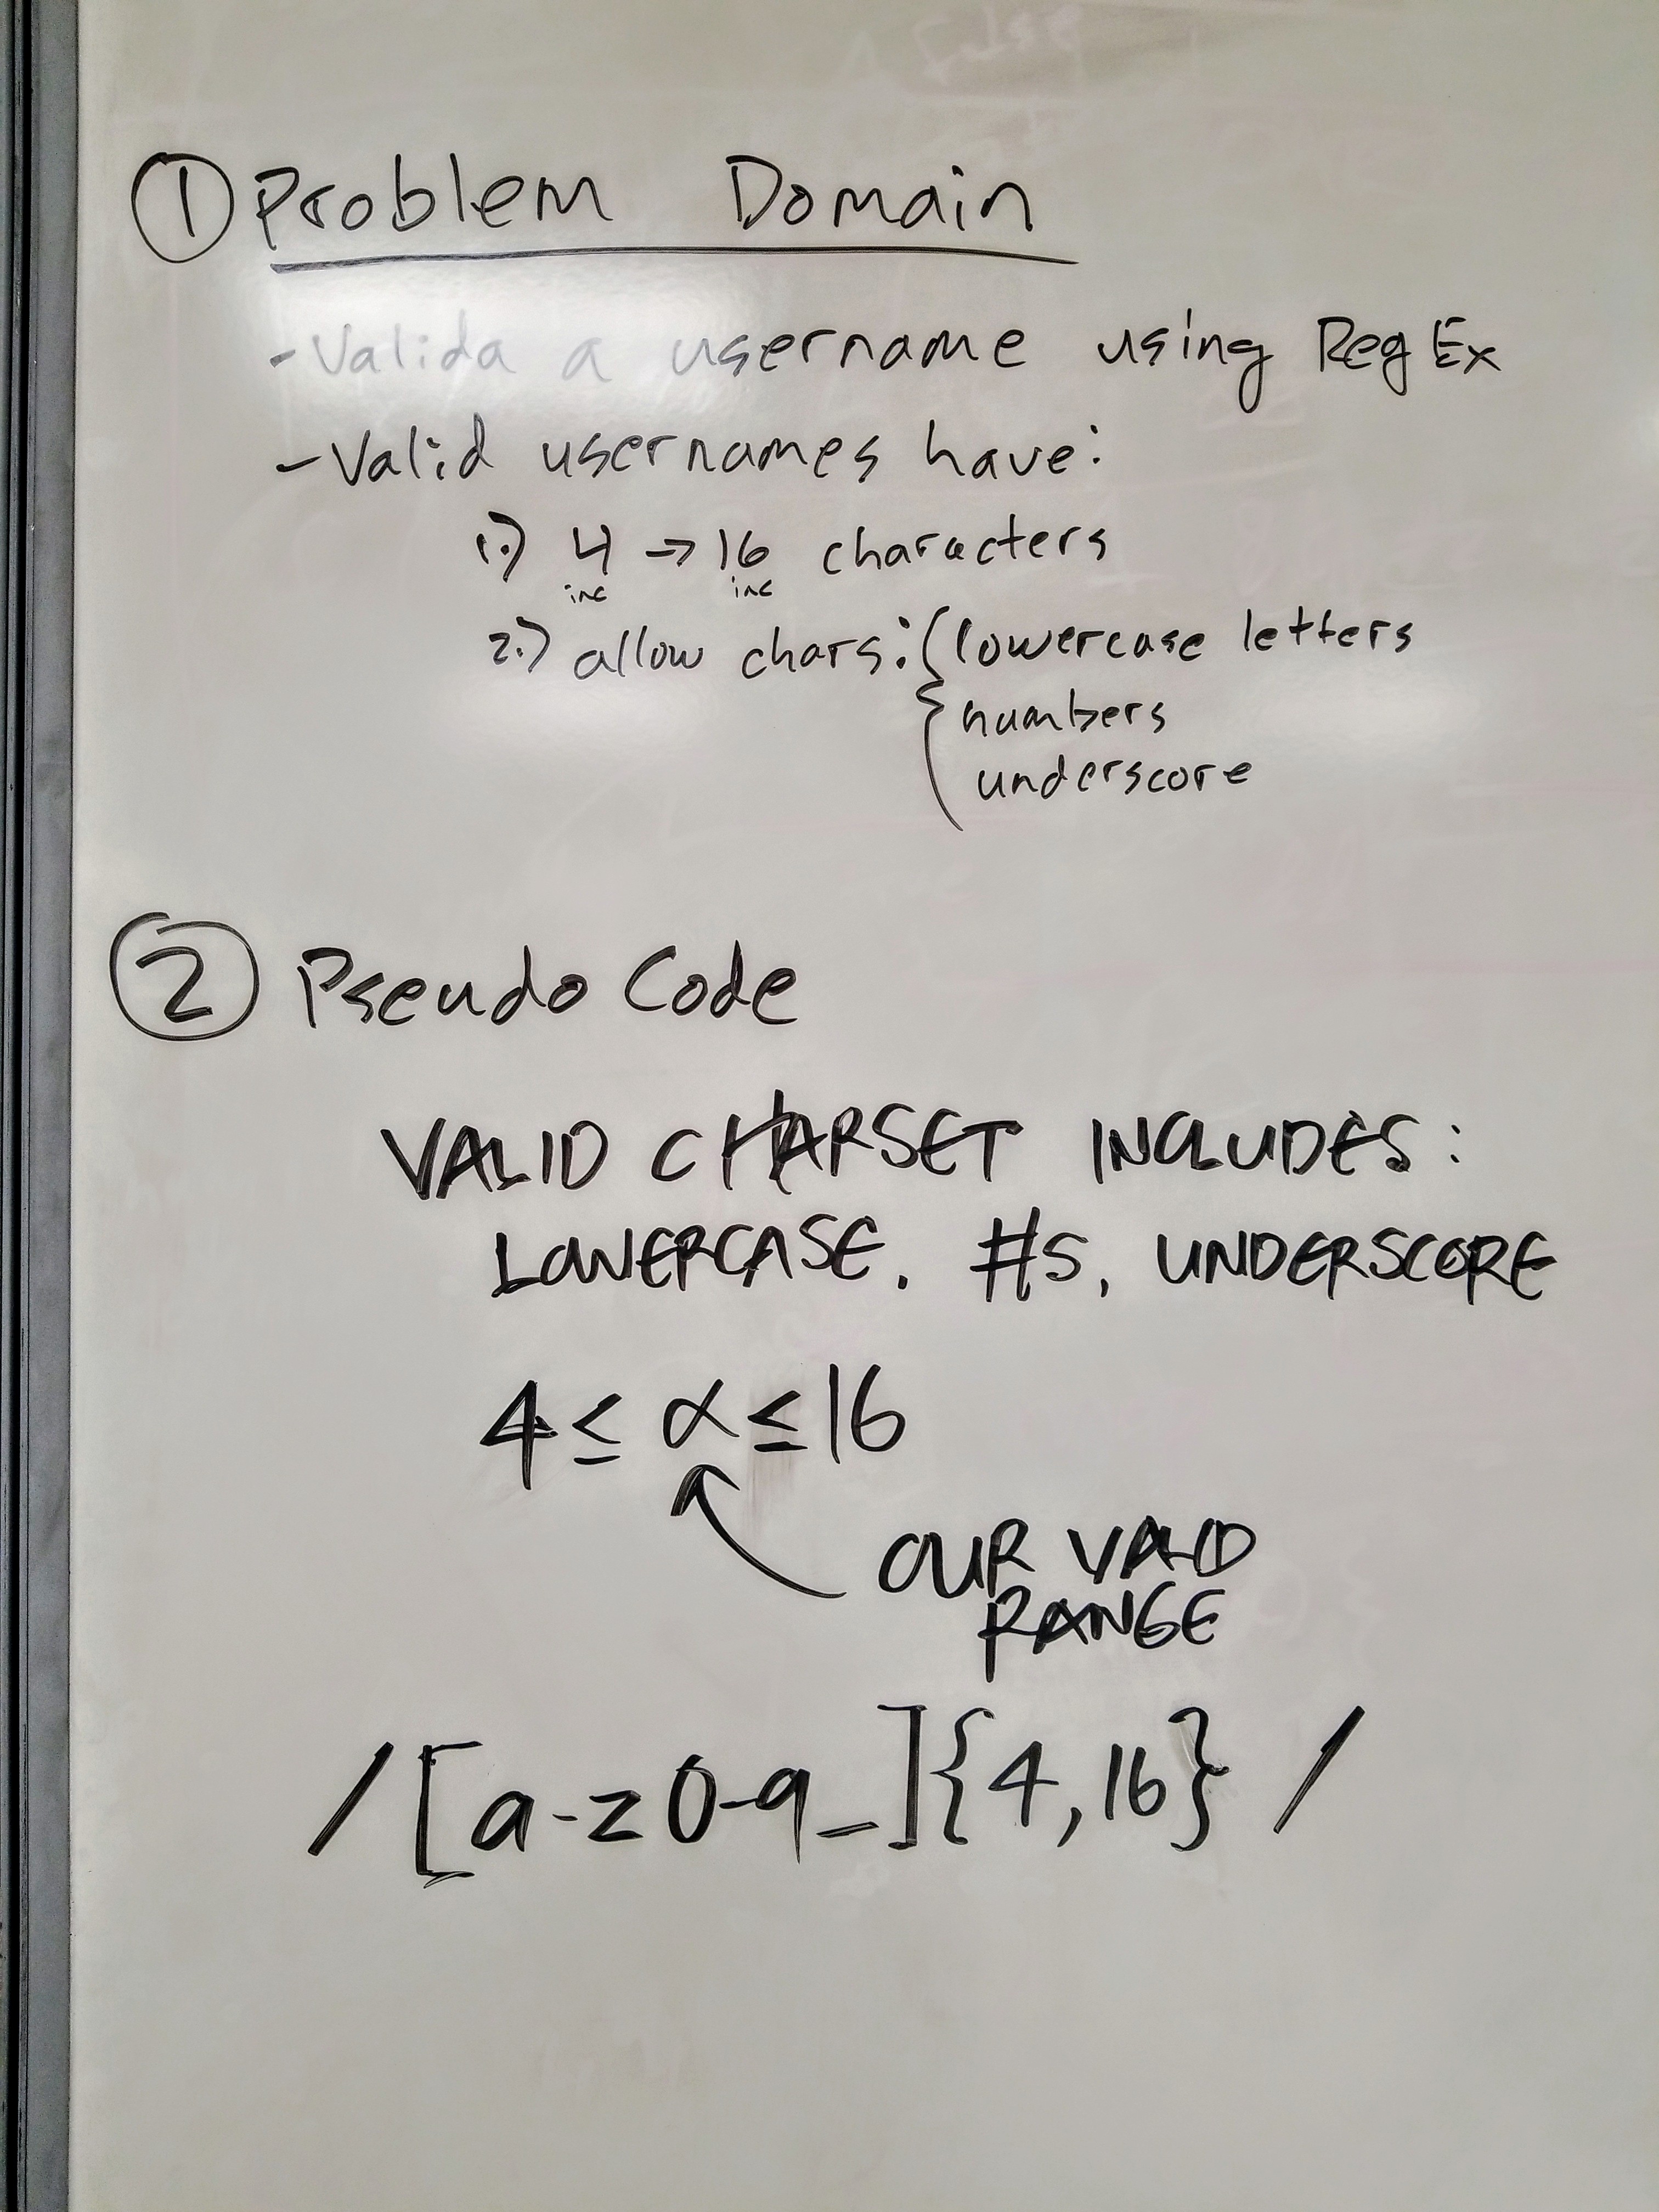 ① Problem Domain
- Valida a username using RegEx
- Valid usernames have:
1.) 4 → 16 characters
inc inc
2.) allow chars: { lowercase letters
numbers
underscore
② Pseudo Code
VALID CHARSET INCLUDES:
LOWERCASE. #S, UNDERSCORE
4 ≤ α ≤ 16
OUR VALID
RANGE
/[a-z0-9_]{4,16}/